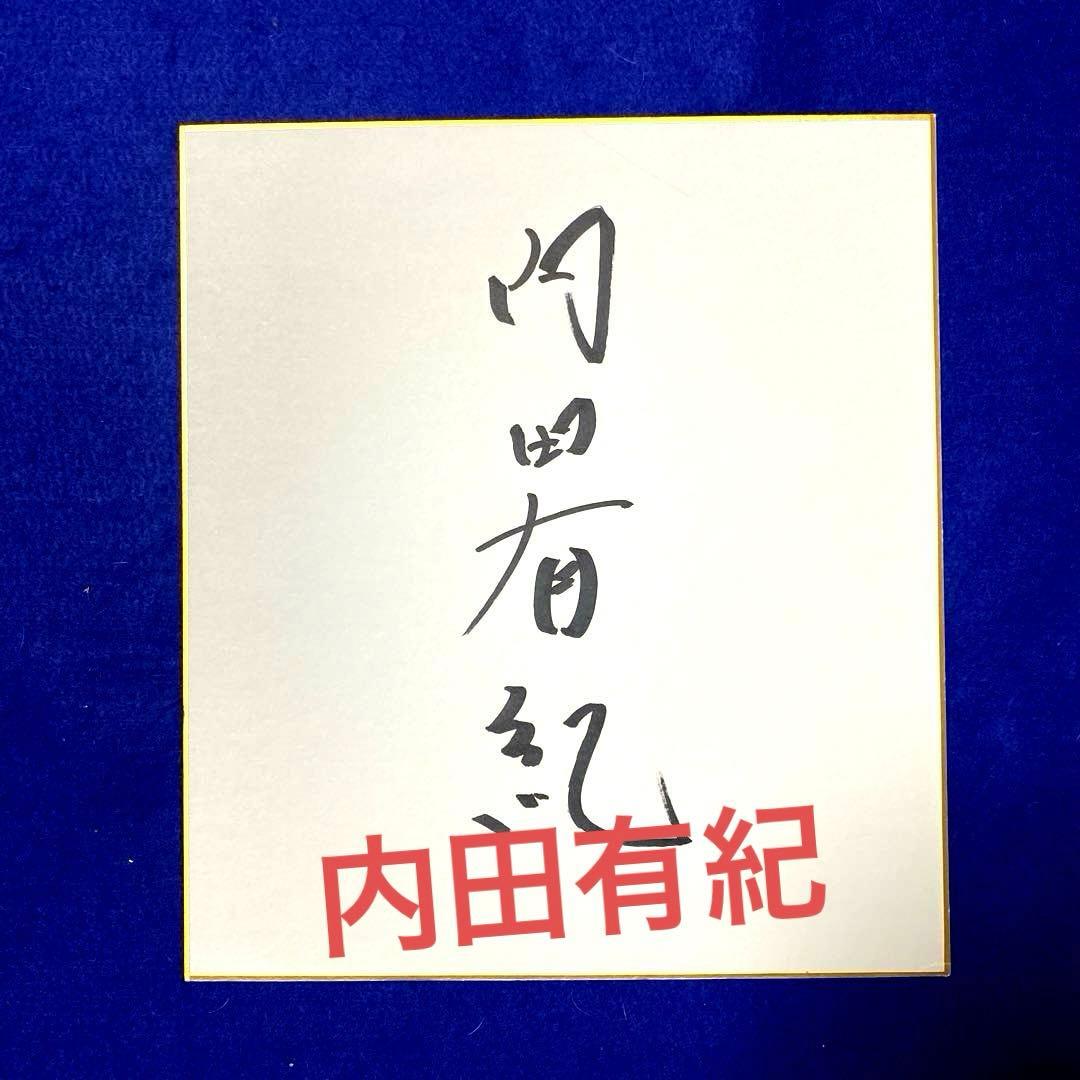 内田有紀
内田有紀